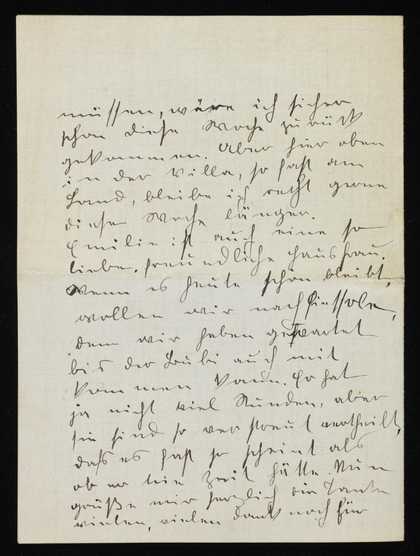 müssen, wäre ich sicher
schon diese Woche zurück
gekommen. Aber hier oben
in der Villa, so fast am
Land, bleibe ich recht gerne
diese Woche länger.
Emilie ist auch eine so
liebe, freundliche Hausfrau.
Wenn es heute schön bleibt,
wollen wir nach Fiessole,
denn wir haben gewartet
bis der Bubi auch mit
kommen kann. Er hat
ja nicht viel Stunden, aber
sie sind so verstreut vertheilt,
dass es fast so scheint als
ob er nie Zeit hätte. Nun
grüße mir herzlich die Tante
vielen, vielen Dank noch für